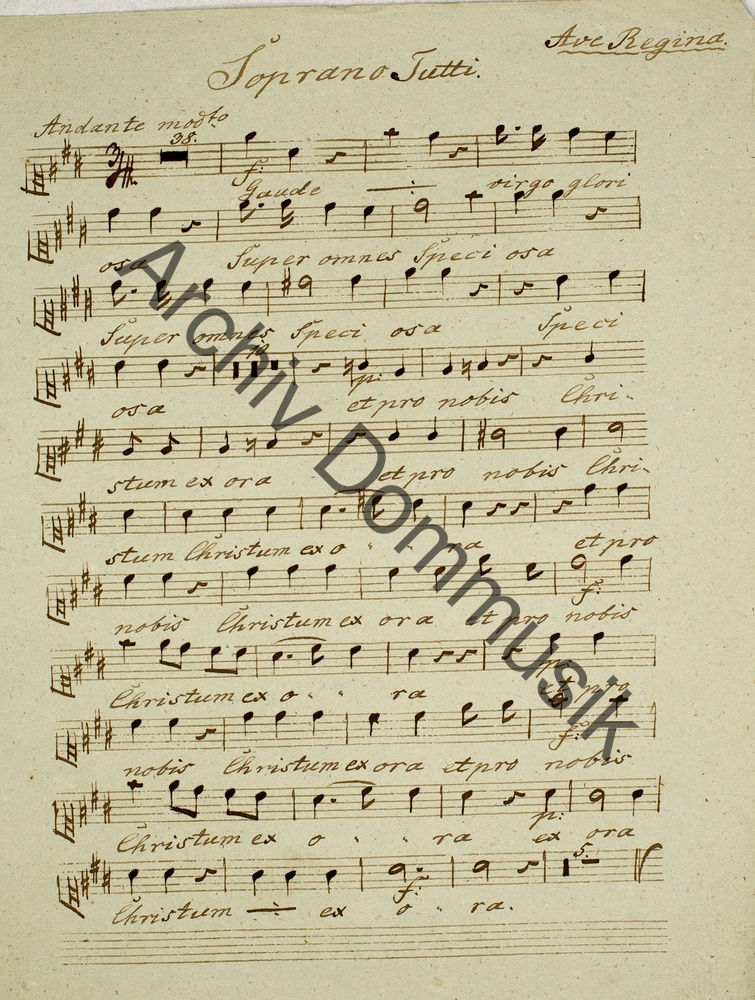 Ave Regina.
Soprano Tutti.
Andante modto
38.
f:
Gaude virgo glori
osa Super omnes Speci osa
Super omnes Speci osa Speci
10
p:
osa et pro nobis Chri-
stum ex ora et pro nobis Chri-
stum Christum ex o ra et pro
f:
nobis Christum ex ora et pro nobis
p:
Christum ex o ra et pro
f:
nobis Christum ex ora et pro nobis
p:
Christum ex o ra ex ora
5.
f:
Christum ex o ra.
Archiv Dommusik